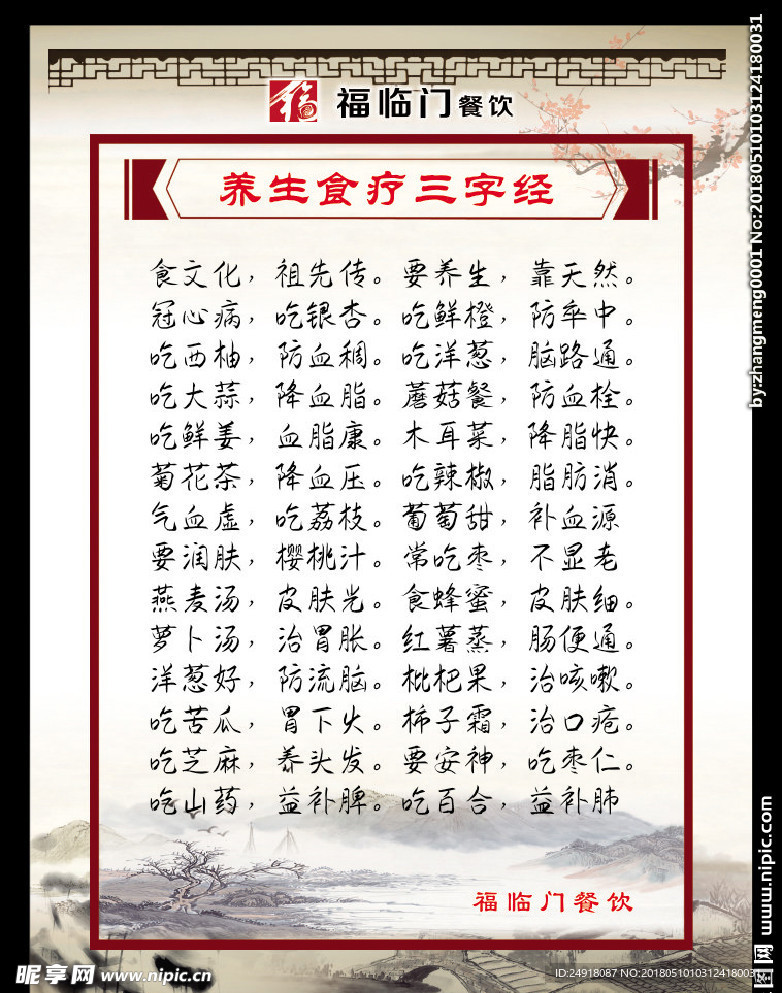 福临门餐饮
养生食疗三字经
食文化，祖先传。要养生，靠天然。
冠心病，吃银杏。吃鲜橙，防卒中。
吃西柚，防血稠。吃洋葱，脑路通。
吃大蒜，降血脂。蘑菇餐，防血栓。
吃鲜姜，血脂康。木耳菜，降脂快。
菊花茶，降血压。吃辣椒，脂肪消。
气血虚，吃荔枝。葡萄甜，补血源
要润肤，樱桃汁。常吃枣，不显老
燕麦汤，皮肤光。食蜂蜜，皮肤细。
萝卜汤，治胃胀。红薯蒸，肠便通。
洋葱好，防流脑。枇杷果，治咳嗽。
吃苦瓜，胃下火。柿子霜，治口疮。
吃芝麻，养头发。要安神，吃枣仁。
吃山药，益补脾。吃百合，益补肺
福临门餐饮
昵享网 www.nipic.cn
ID:24918087 NO:20180510103124180031
by:zhangmeng0001 No:20180510103124180031
图网 www.nipic.com